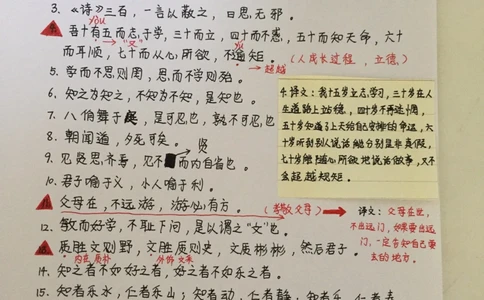 3. 《诗》三百，一言以蔽之，曰思无邪。
yǒu
吾十有五而志于学，三十而立，四十而不惑，五十而知天命，六十
"又"
而耳顺，七十而从心所欲，不逾矩。（人成长过程，立德）
yú
超越
5. 学而不思则罔，思而不学则殆。
6. 知之为知之，不知为不知，是知也。
7. 八佾舞于庭，是可忍也，孰不可忍也
8. 朝闻道，夕死可矣。
贤
9. 见贤思齐焉，见不而内自省也。
10. 君子喻于义，小人喻于利。
父母在，不远游，游必有方。（孝敬父母）
12. 敏而好学，不耻下问，是以谓之"文"也。
质胜文则野，文胜质则史，文质彬彬，然后君子。
内在质朴 外饰文采
14. 知之者不如好之者，好之者不如乐之者。
15. 知者乐水，仁者乐山；知者动，仁者静，知者乐，仁者寿
4. 译文：我十五岁立志学习，三十岁在人
生道路上站稳，四十岁不再迷惘，
五十岁知道了上天给自己安排的命运，六
十岁听到别人说话能分别是非真假，
七十岁能随心所欲地说话做事，又不
会超越规矩。
译文：父母在世，
不出远门，如果要出远
门，一定告知自己要
去的地方。